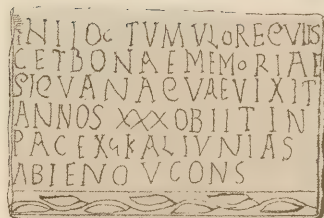 IN HOC TUMULO REQUIIS
CET BONAE MEMORIAE
SICVANA QVAE VIXIT
ANNOS XXX OBIIT IN
PACE X KAL IVNIAS
ABIENO V CONS